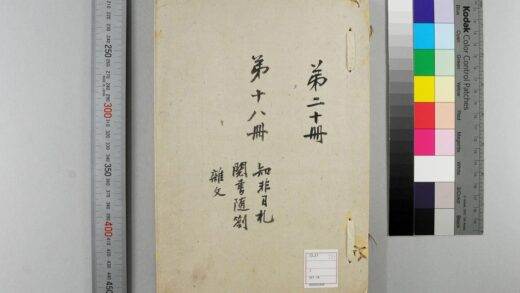 第二十冊
第十八冊
知非日札
閱書隨劄
雜文
Kodak
Color Control Patches
Blue
Cyan
Green
Yellow
Red
Magenta
White
Black
250
300
350
400
450